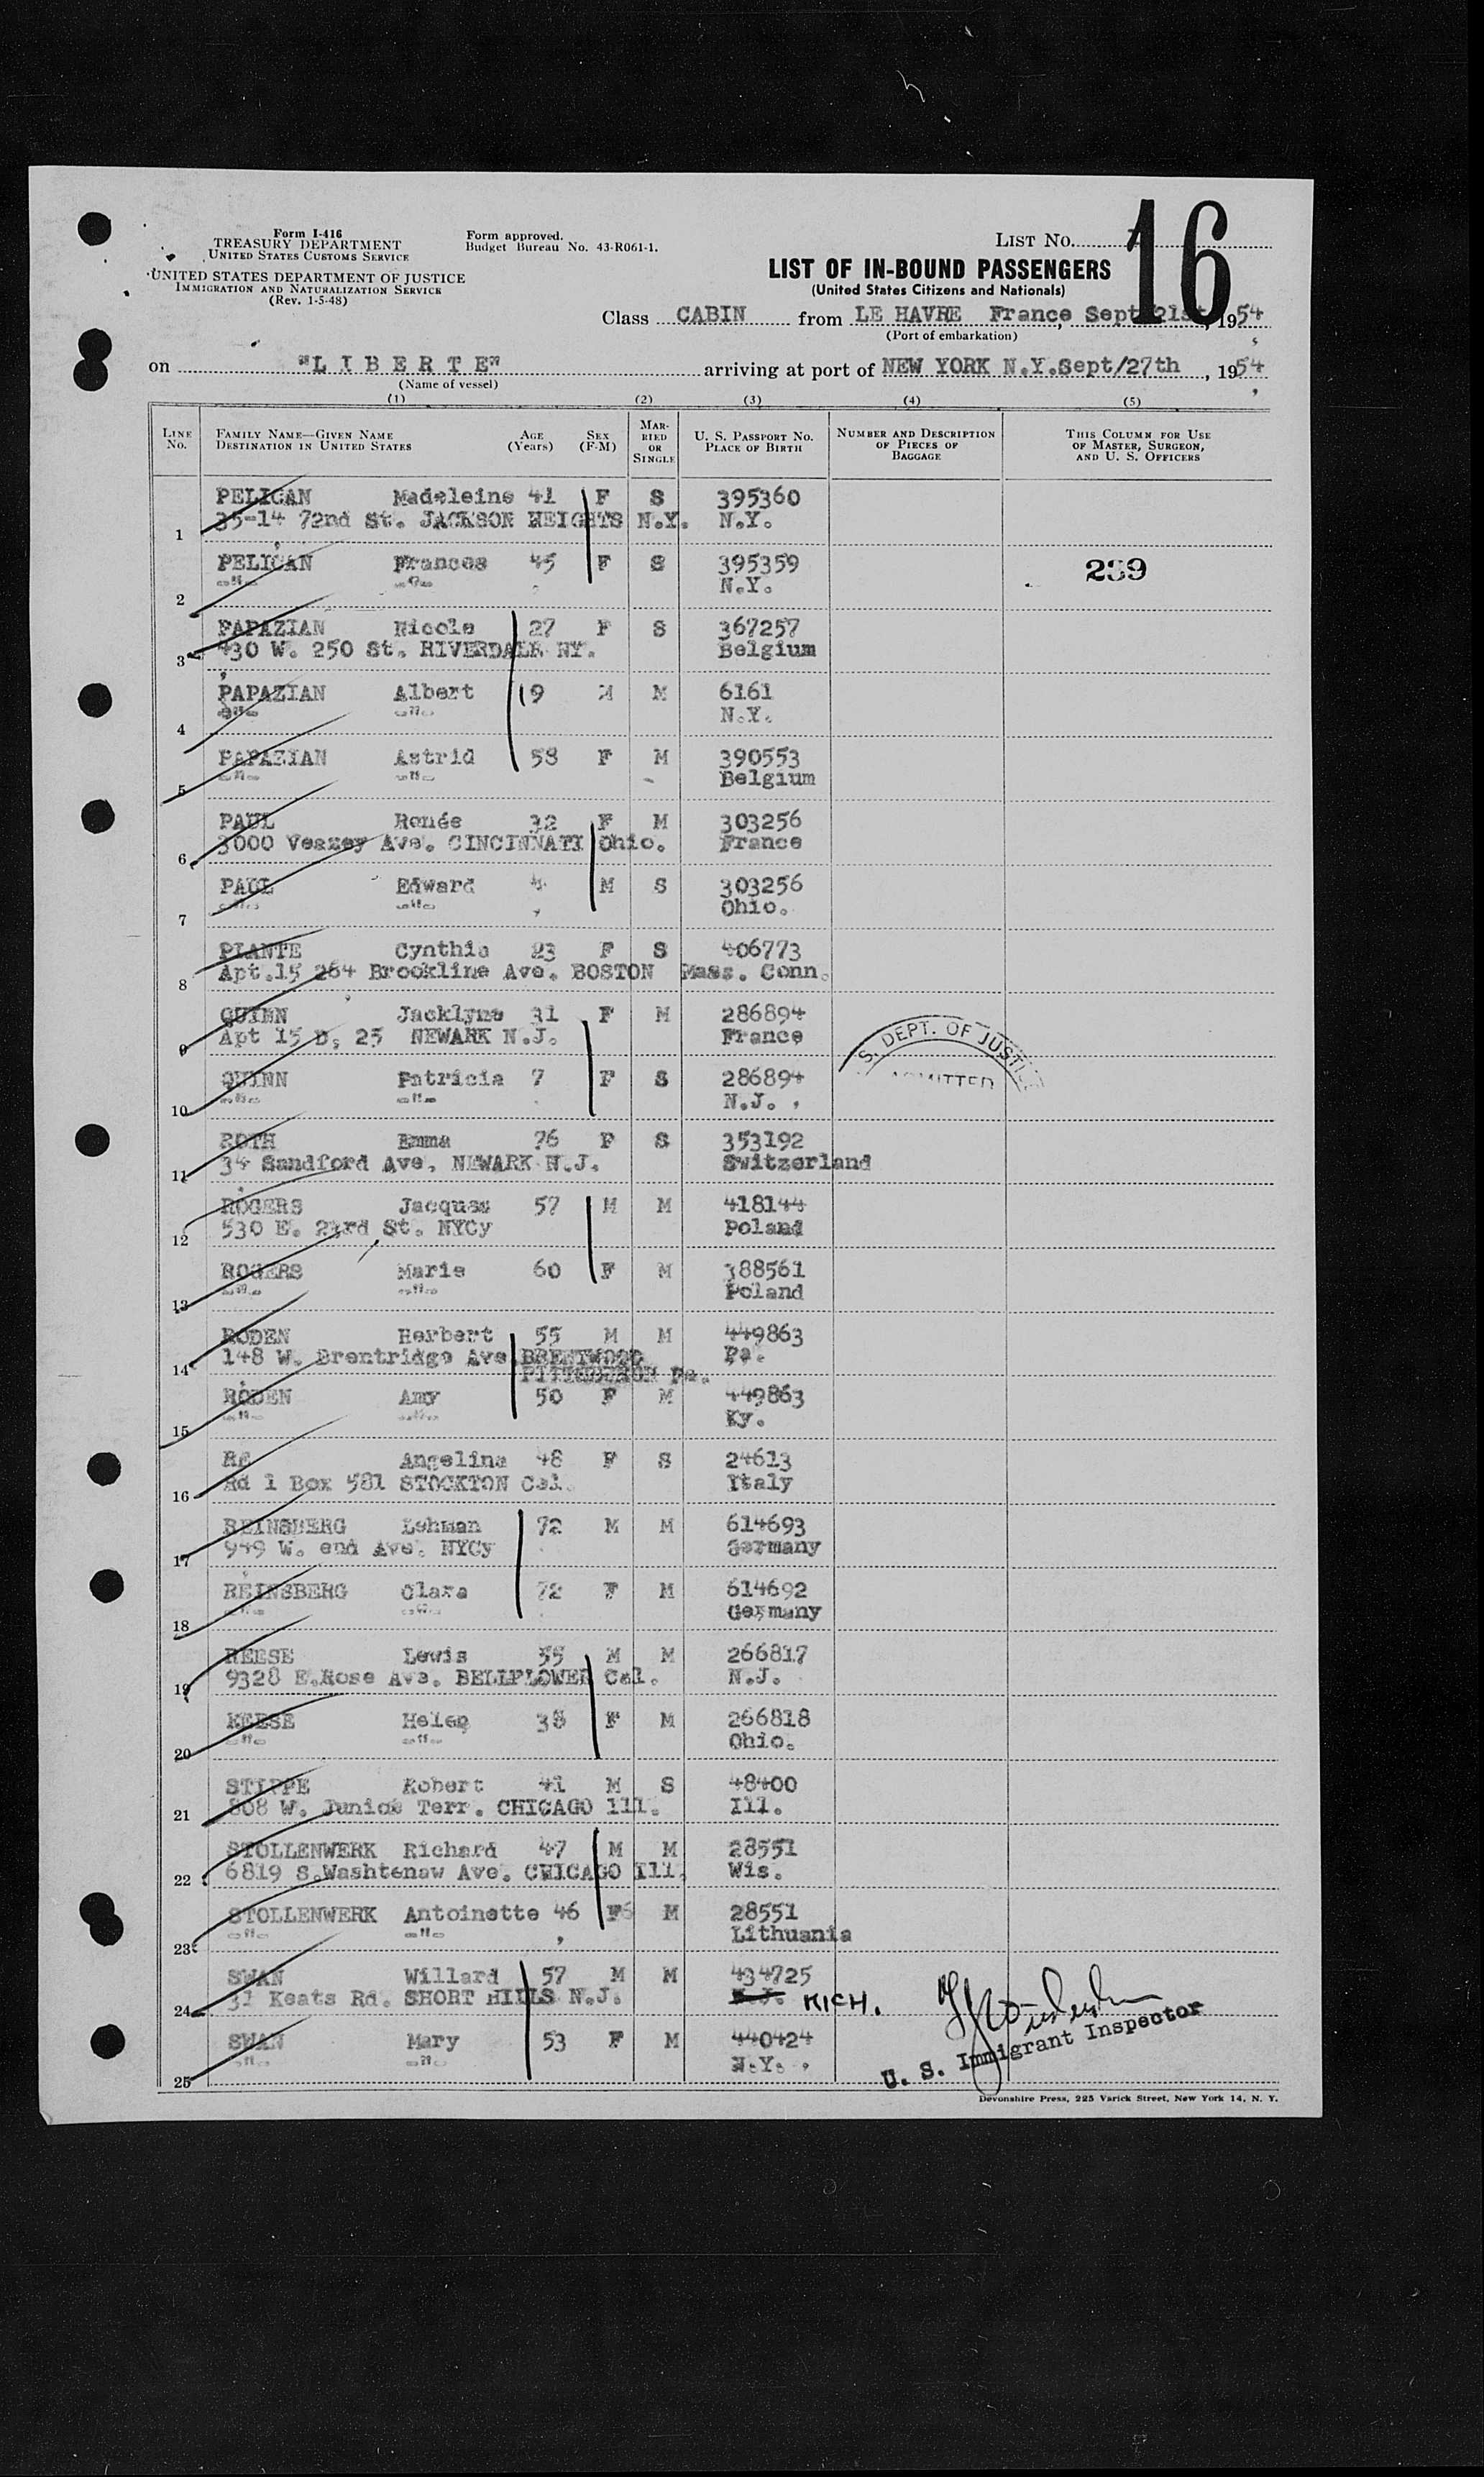 Form I-416
TREASURY DEPARTMENT
UNITED STATES CUSTOMS SERVICE
UNITED STATES DEPARTMENT OF JUSTICE
IMMIGRATION AND NATURALIZATION SERVICE
(Rev. 1-5-48)
Form approved.
Budget Bureau No. 43-R061-1.
LIST No.
16
LIST OF IN-BOUND PASSENGERS
(United States Citizens and Nationals)
Class CABIN from LE HAVRE France, Sept 21st, 1954
(Port of embarkation)
on "L I B E R T E" arriving at port of NEW YORK N.Y. Sept/27th, 1954
(Name of vessel)
(1) (2) (3) (4) (5)
LINE No. FAMILY NAME—GIVEN NAME DESTINATION IN UNITED STATES AGE (Years) SEX (F-M) MARRIED OR SINGLE U. S. PASSPORT No. PLACE OF BIRTH NUMBER AND DESCRIPTION OF PIECES OF BAGGAGE THIS COLUMN FOR USE OF MASTER, SURGEON, AND U. S. OFFICERS
PELICAN Madeleine 41 F S 395360
1 35-14 72nd St. JACKSON HEIGHTS N.Y. N.Y.
PELICAN Frances 45 F S 395359 239
2 -"- -"- N.Y.
PAPAZIAN Nicole 27 F S 367257
3 430 W. 250 St. RIVERDALE NY. Belgium
PAPAZIAN Albert 9 M M 6161
4 -"- -"- N.Y.
PAPAZIAN Astrid 58 F M 390553
5 -"- -"- Belgium
PAUL Renée 32 F M 303256
6 3000 Veazey Ave. CINCINNATI Ohio. France
PAUL Edward 4 M S 303256
7 -"- -"- Ohio.
PLANTE Cynthia 23 F S 406773
8 Apt.15 264 Brookline Ave. BOSTON Mass. Conn.
QUINN Jacklyne 31 F M 286894
9 Apt 15 D, 25 NEWARK N.J. France
QUINN Patricia 7 F S 286894
10 -"- -"- N.J.
S. DEPT. OF JUSTICE
ADMITTED
ROTH Emma 76 F S 353192
11 34 Sandford Ave. NEWARK N.J. Switzerland
ROGERS Jacques 57 M M 418144
12 530 E. 23rd St. NYCy Poland
ROGERS Marie 60 F M 388561
13 -"- -"- Poland
RODEN Herbert 55 M M 449863
14 148 W. Brentridge Ave BRENTWOOD Pa.
PITTSBURGH Pa.
RODEN Amy 50 F M 449863
15 -"- -"- Ky.
RE Angelina 48 F S 24613
16 Rd 1 Box 581 STOCKTON Cal. Italy
REINSBERG Lehman 72 M M 614693
17 949 W. end Ave. NYCy Germany
REINSBERG Clara 72 F M 614692
18 -"- -"- Germany
REESE Lewis 35 M M 266817
19 9328 E.Rose Ave. BELLFLOWER Cal. N.J.
REESE Helen 38 F M 266818
20 -"- -"- Ohio.
STIPPE Robert 41 M S 48400
21 808 W. Junior Terr. CHICAGO Ill. Ill.
STOLLENWERK Richard 47 M M 28551
22 6819 S.Washtenaw Ave. CHICAGO Ill. Wis.
STOLLENWERK Antoinette 46 F M 28551
23 -"- -"- Lithuania
SWAN Willard 57 M M 434725
24 31 Keats Rd. SHORT HILLS N.J. N.J. MICH.
SWAN Mary 53 F M 440424
25 -"- -"- N.Y.
U. S. Immigrant Inspector
Devonshire Press, 225 Varick Street, New York 14, N. Y.